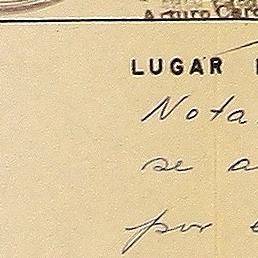 Arturo
LUGAR
Nota
se a
por